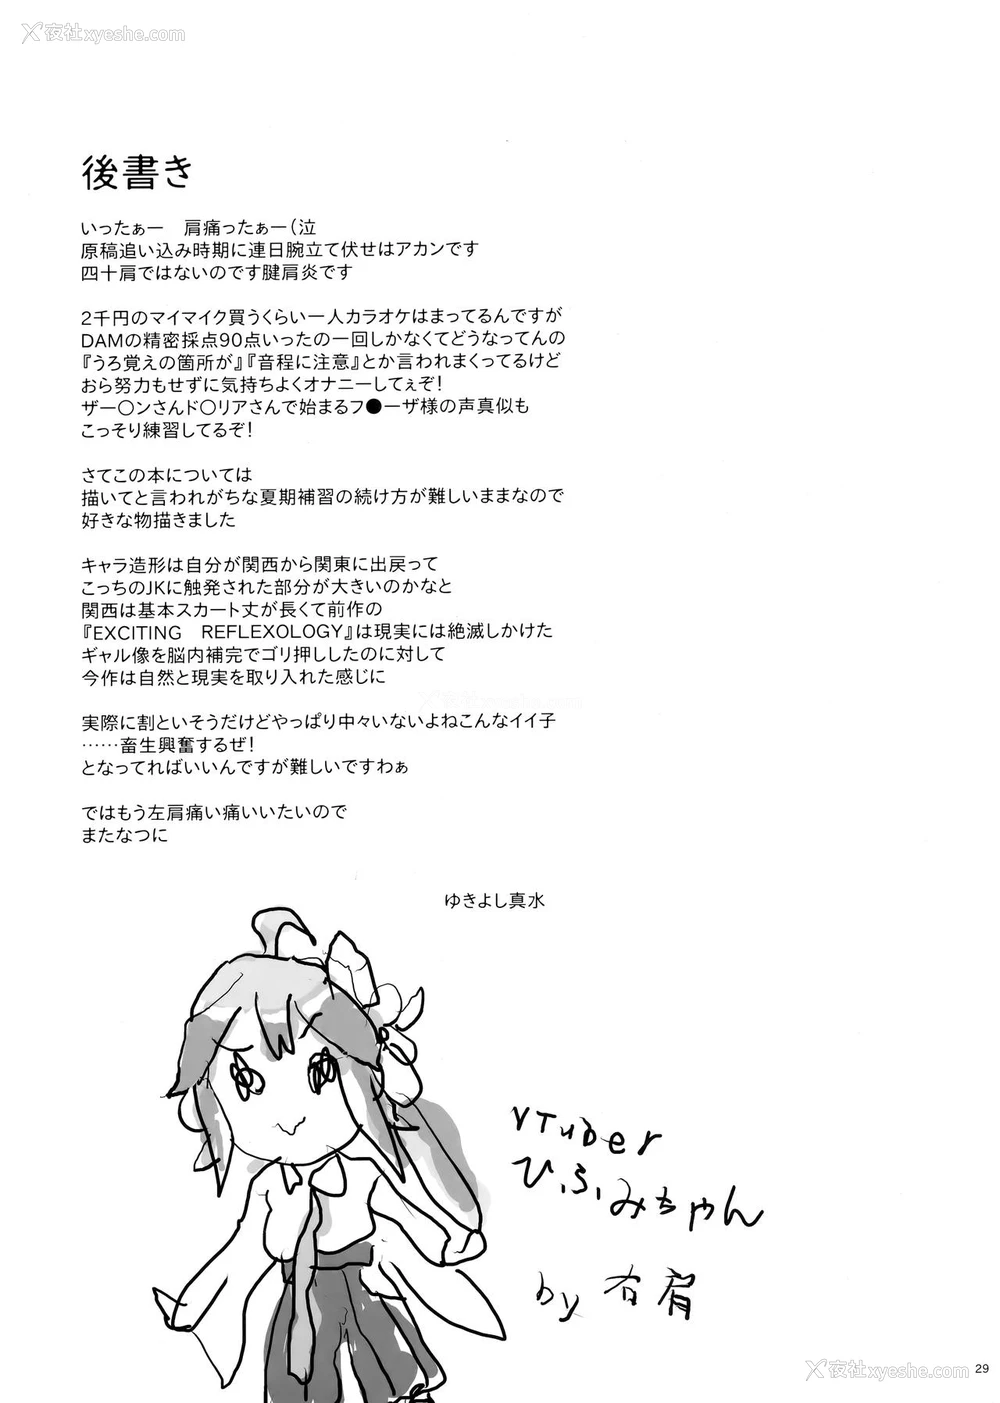 夜社xyeshe.com
後書き
いったぁー　肩痛ったぁー(泣
原稿追い込み時期に連日腕立て伏せはアカンです
四十肩ではないのです腱肩炎です
2千円のマイマイク買うくらい一人カラオケはまってるんですが
DAMの精密採点90点いったの一回しかなくてどうなってんの
『うろ覚えの箇所が』『音程に注意』とか言われまくってるけど
おら努力もせずに気持ちよくオナニーしてぇぞ!
ザー〇ンさんド〇リアさんで始まるフ●ーザ様の声真似も
こっそり練習してるぞ!
さてこの本については
描いてと言われがちな夏期補習の続け方が難しいままなので
好きな物描きました
キャラ造形は自分が関西から関東に出戻って
こっちのJKに触発された部分が大きいのかなと
関西は基本スカート丈が長くて前作の
『EXCITING　REFLEXOLOGY』は現実には絶滅しかけた
ギャル像を脳内補完でゴリ押ししたのに対して
今作は自然と現実を取り入れた感じに
実際に割といそうだけどやっぱり中々いないよねこんなイイ子
……畜生興奮するぜ!
となってればいいんですが難しいですわぁ
ではもう左肩痛い痛いいたいので
またなつに
ゆきよし真水
VTuber
ひふみちゃん
by 右肩
29
夜社xyeshe.com